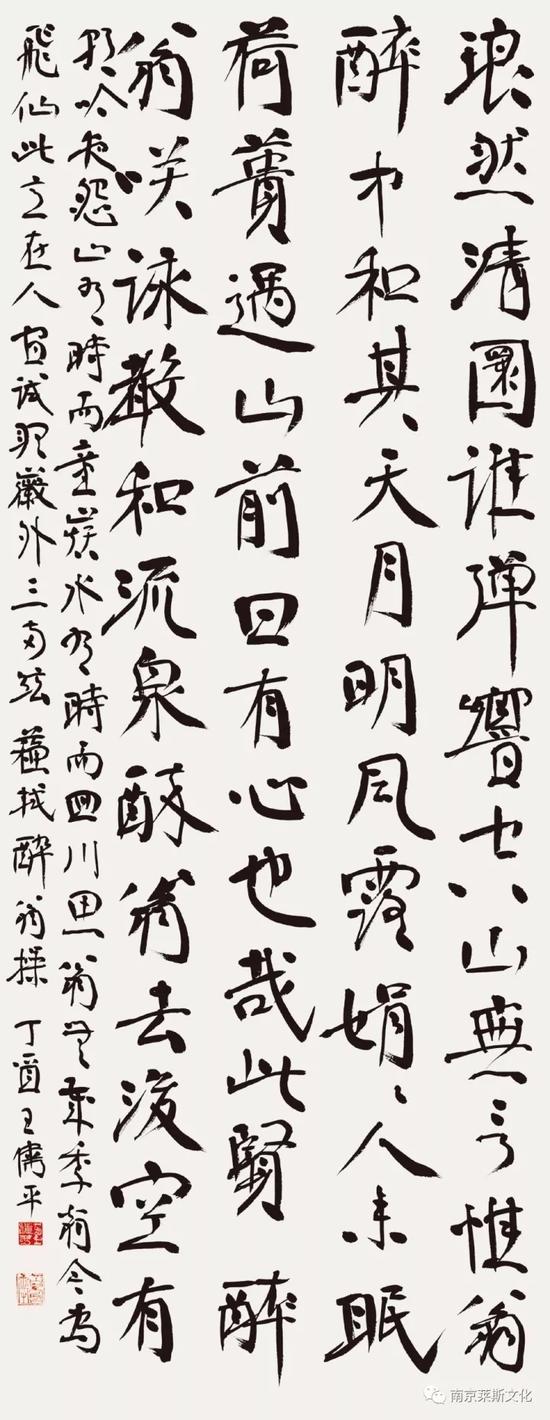 琅然清圜谁彈響空山無言惟翁
醉中和其天月明風露娟〻人未眠
荷蕢過山前曰有心也哉此賢醉
翁咲詠聲和流泉醉翁去後空有
朝吟夜怨山有時而童巔水有時而回川思翁無歲年翁今為
飛仙此意在人間試聽徽外三两弦 蘇軾醉翁操 丁酉王平
南京莱斯文化